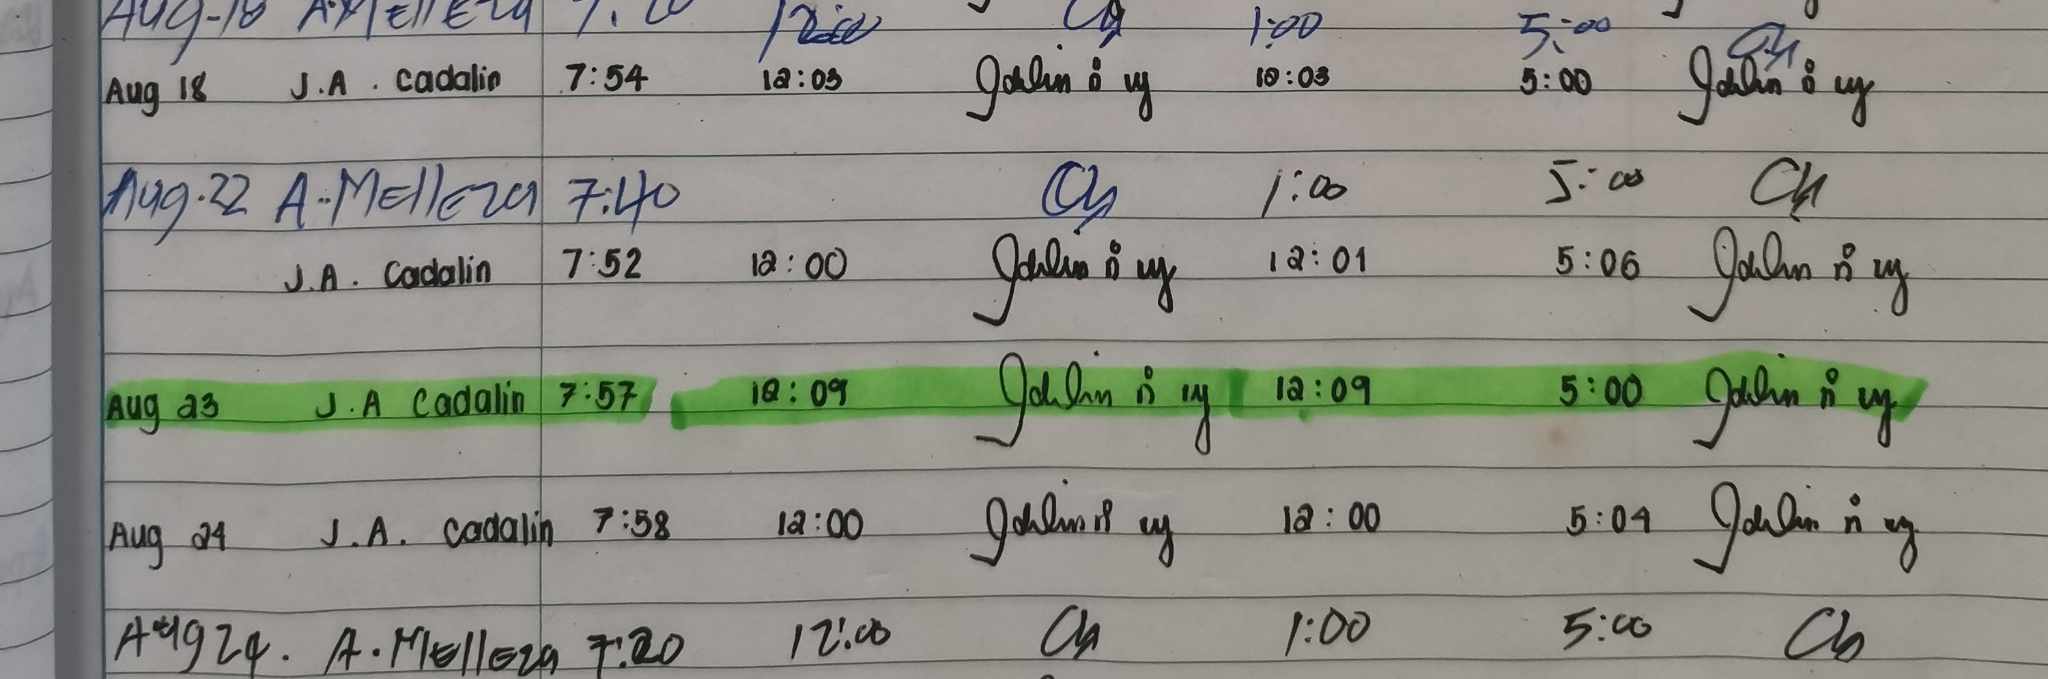 Aug-18 A. Melleza 7:20 12:00 1:00 5:00
Aug 18 J.A. Cadalin 7:54 12:03 12:03 5:00
Aug.22 A. Melleza 7:40 1:00 5:00
J.A. Cadalin 7:52 12:00 12:01 5:06
Aug 23 J.A Cadalin 7:57 12:09 12:09 5:00
Aug 24 J.A. Cadalin 7:58 12:00 12:00 5:04
Aug 24. A. Melleza 7:20 12:00 1:00 5:00